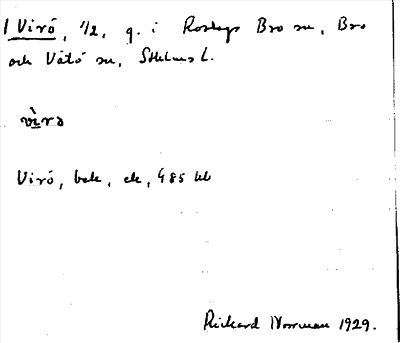 1 Virö, 1/2, g. i Roslags Bro sn, Bro
och Vätö sn, Sthlms L.
vìrə
Virö, bek, ek, 485 bl
Rickard Norrman 1929.